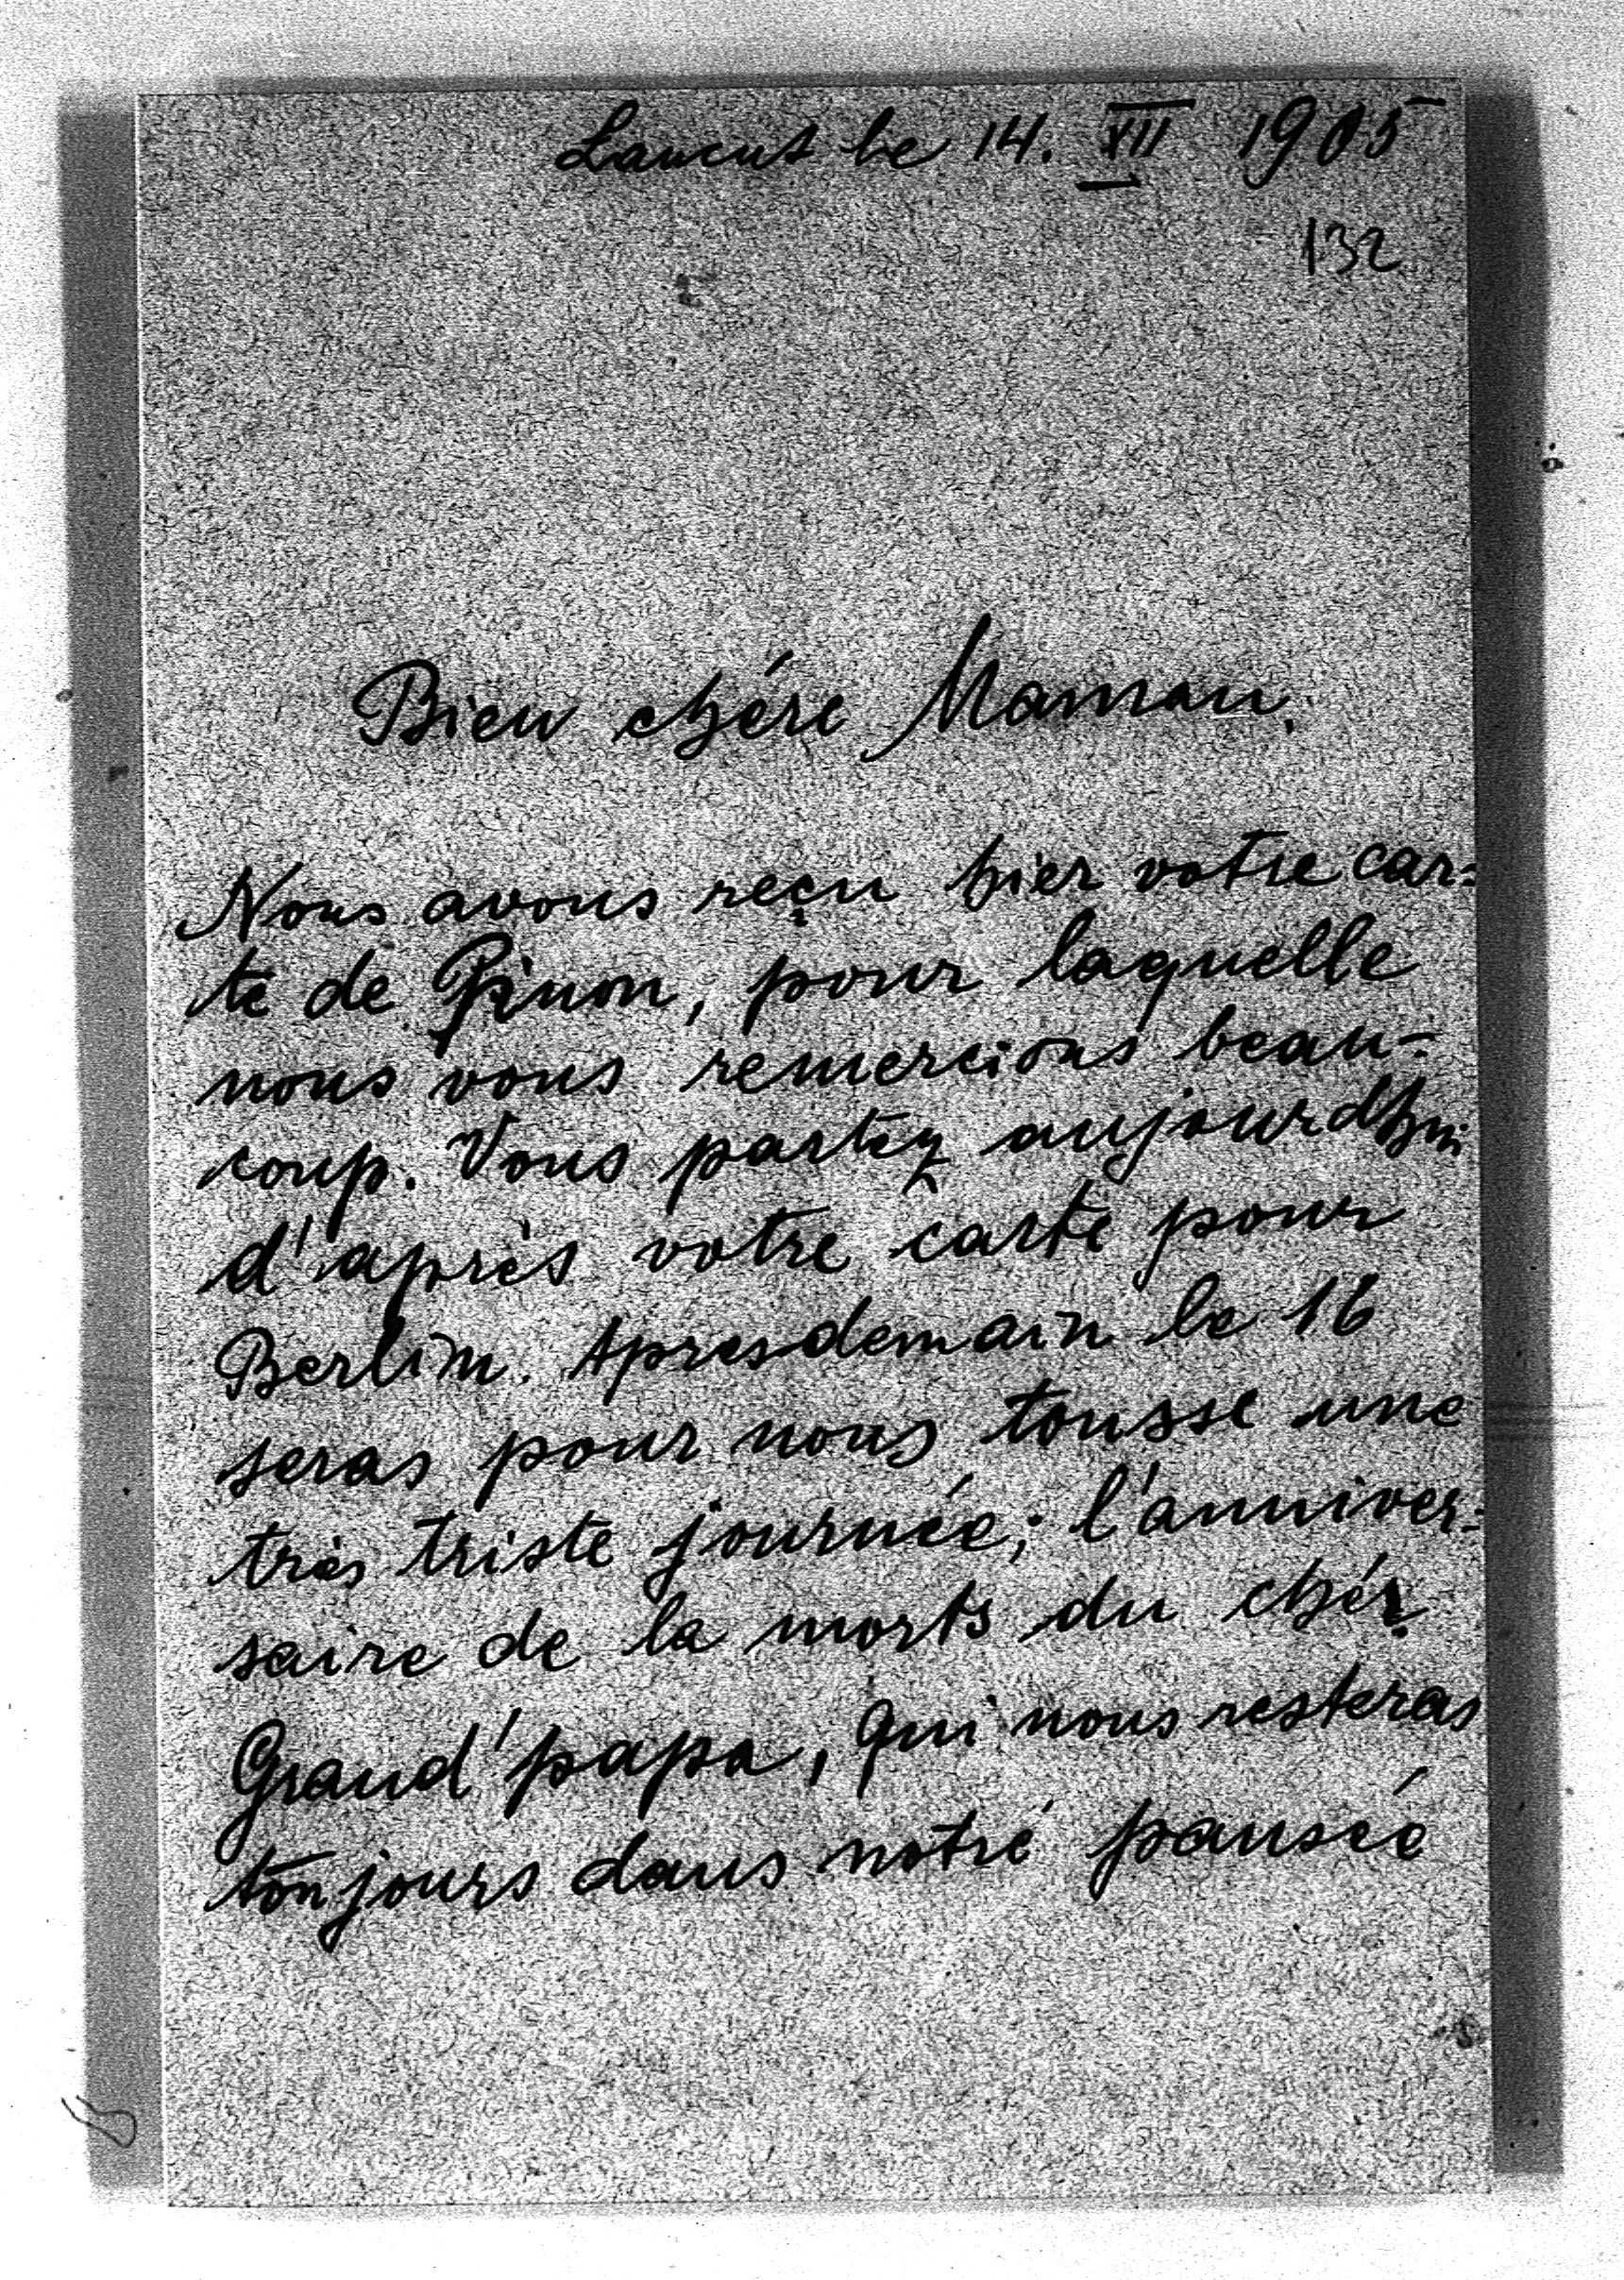 Lancut le 14. XII 1905
132
Bien chére Maman,
Nous avons reçu hier votre car=
te de Pinon, pour laquelle
nous vous remercions beau-
coup. Vous partez aujourdhui
d'après votre carte pour
Berlin. Apresdemain le 16
seras pour nous tousse une
très triste journée; l'anniver=
saire de la morts du chér
Grand'papa, qui nous resteras
toujours dans notré pausée